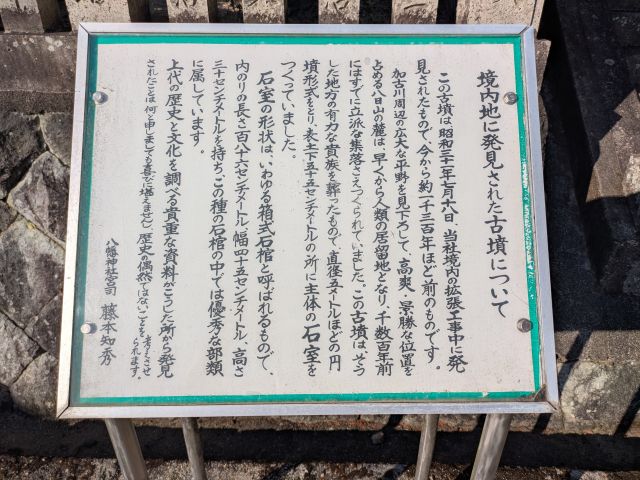 境内地に発見された古墳について
この古墳は昭和三十一年七月十六日、当社境内の拡張工事中に発
見されたもので、今から約一千三百年ほど前のものです。
加古川周辺の広大な平野を見下ろして、高爽・景勝な位置を
占める八日山の麓は、早くから人類の居留地となり、千数百年前
にはすでに立派な集落さえつくられていました。この古墳は、そう
した地方の有力な貴族を葬ったもので、直径五メートルほどの円
墳形式をとり、表土下五十五センチメートルの所に主体の石室を
つくっていました。
石室の形状は、いわゆる箱式石棺と呼ばれるもので、
内のりの長さ百八十六センチメートル、幅四十五センチメートル、高さ
三十センチメートルを持ち、この種の石棺の中では優秀な部類
に属しています。
上代の歴史と文化を調べる貴重な資料がこうした所から発見
されたことは、何と申しましても喜びに堪えませんし、歴史の偶然ではないことを考えさせ
られます。
八幡神社宮司 藤本知秀